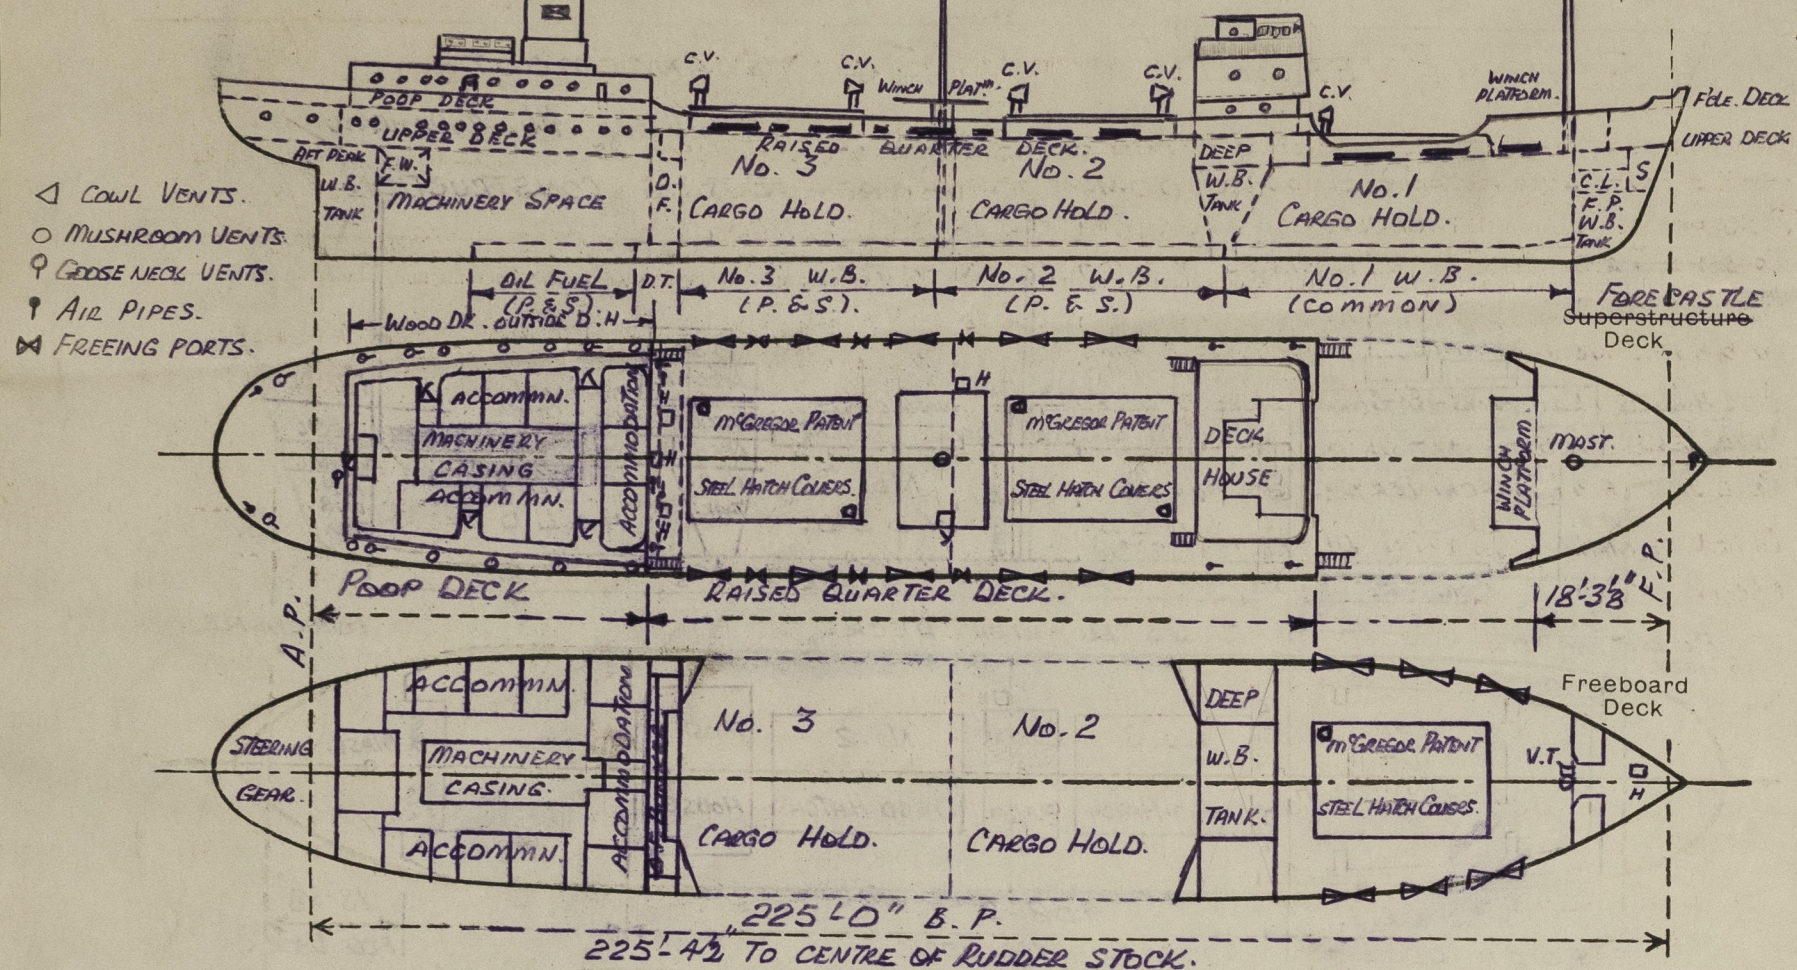 C.V.
C.V.
WINCH PLATM.
C.V.
C.V.
C.V.
WINCH
PLATFORM.
F'CLE. DECK
UPPER DECK
POOP DECK
UPPER DECK
RAISED QUARTER DECK.
AFT PEAK
W.B.
TANK
F.W.
MACHINERY SPACE
O.
F.
No. 3
CARGO HOLD.
No. 2
CARGO HOLD.
DEEP
W.B.
TANK
No. 1
CARGO HOLD.
C.L.
S
F.P.
W.B.
TANK
COWL VENTS.
MUSHROOM VENTS.
GOOSE NECK VENTS.
AIR PIPES.
FREEING PORTS.
OIL FUEL
(P. & S.)
D.T.
No. 3 W.B.
(P. & S.)
No. 2 W.B.
(P. & S.)
No. 1 W.B.
(COMMON)
WOOD DK. OUTSIDE D.H
FORECASTLE
Superstructure
Deck
ACCOMMN.
MACHINERY
CASING
ACCOMMN.
ACCOMMODATION
H
H
H
McGREGOR PATENT
STEEL HATCH COVERS.
McGREGOR PATENT
STEEL HATCH COVERS
DECK
HOUSE
WINCH
PLATFORM.
MAST.
POOP DECK
RAISED QUARTER DECK.
18'-3⅜"
A.P.
F.P.
Freeboard
Deck
STEERING
GEAR.
ACCOMMN.
MACHINERY
CASING.
ACCOMMN.
ACCOMMODATION
No. 3
CARGO HOLD.
No. 2
CARGO HOLD.
DEEP
W.B.
TANK.
McGREGOR PATENT
STEEL HATCH COVERS
V.T.
H
225'-0" B.P.
225'-4½" TO CENTRE OF RUDDER STOCK.